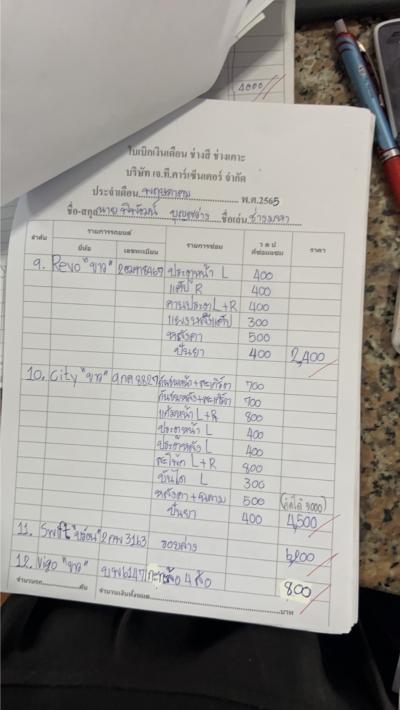 4000
ใบเบิกเงินเดือน ช่างสี ช่างเคาะ
บริษัท เจ.ที.คาร์เซ็นเตอร์ จำกัด
ประจำเดือน พฤษภาคม พ.ศ.2565
ชื่อ-สกุล นาย ชื่อเล่น
ลำดับ รายการรถยนต์ รายการซ่อม ราคา
ยี่ห้อ เลขทะเบียน
9. Revo "ขาว" ประตูหน้า L 400
แก้ม R 400
คานประตู L+R 400
แผงหลังแค๊ป 300
หลังคา 500
ปั่นยา 400 2,400
10. City "ขาว" 9กค 8827 กันชนหน้า+สเกิร์ต 700
กันชนหลัง+สเกิร์ต 700
แก้มหน้า L+R 800
ประตูหน้า L 400
ประตูหลัง L 400
สะโพก L+R 800
บันได L 300
หลังคา+ 500 (คิดได้ 5000)
ปั่นยา 400 4,500
11. Swift 3163 รอบคัน 6,200
12. Vigo "ขาว" 6147 4 ล้อ 800
จำนวนรถ คัน จำนวนเงินทั้งหมด บาท